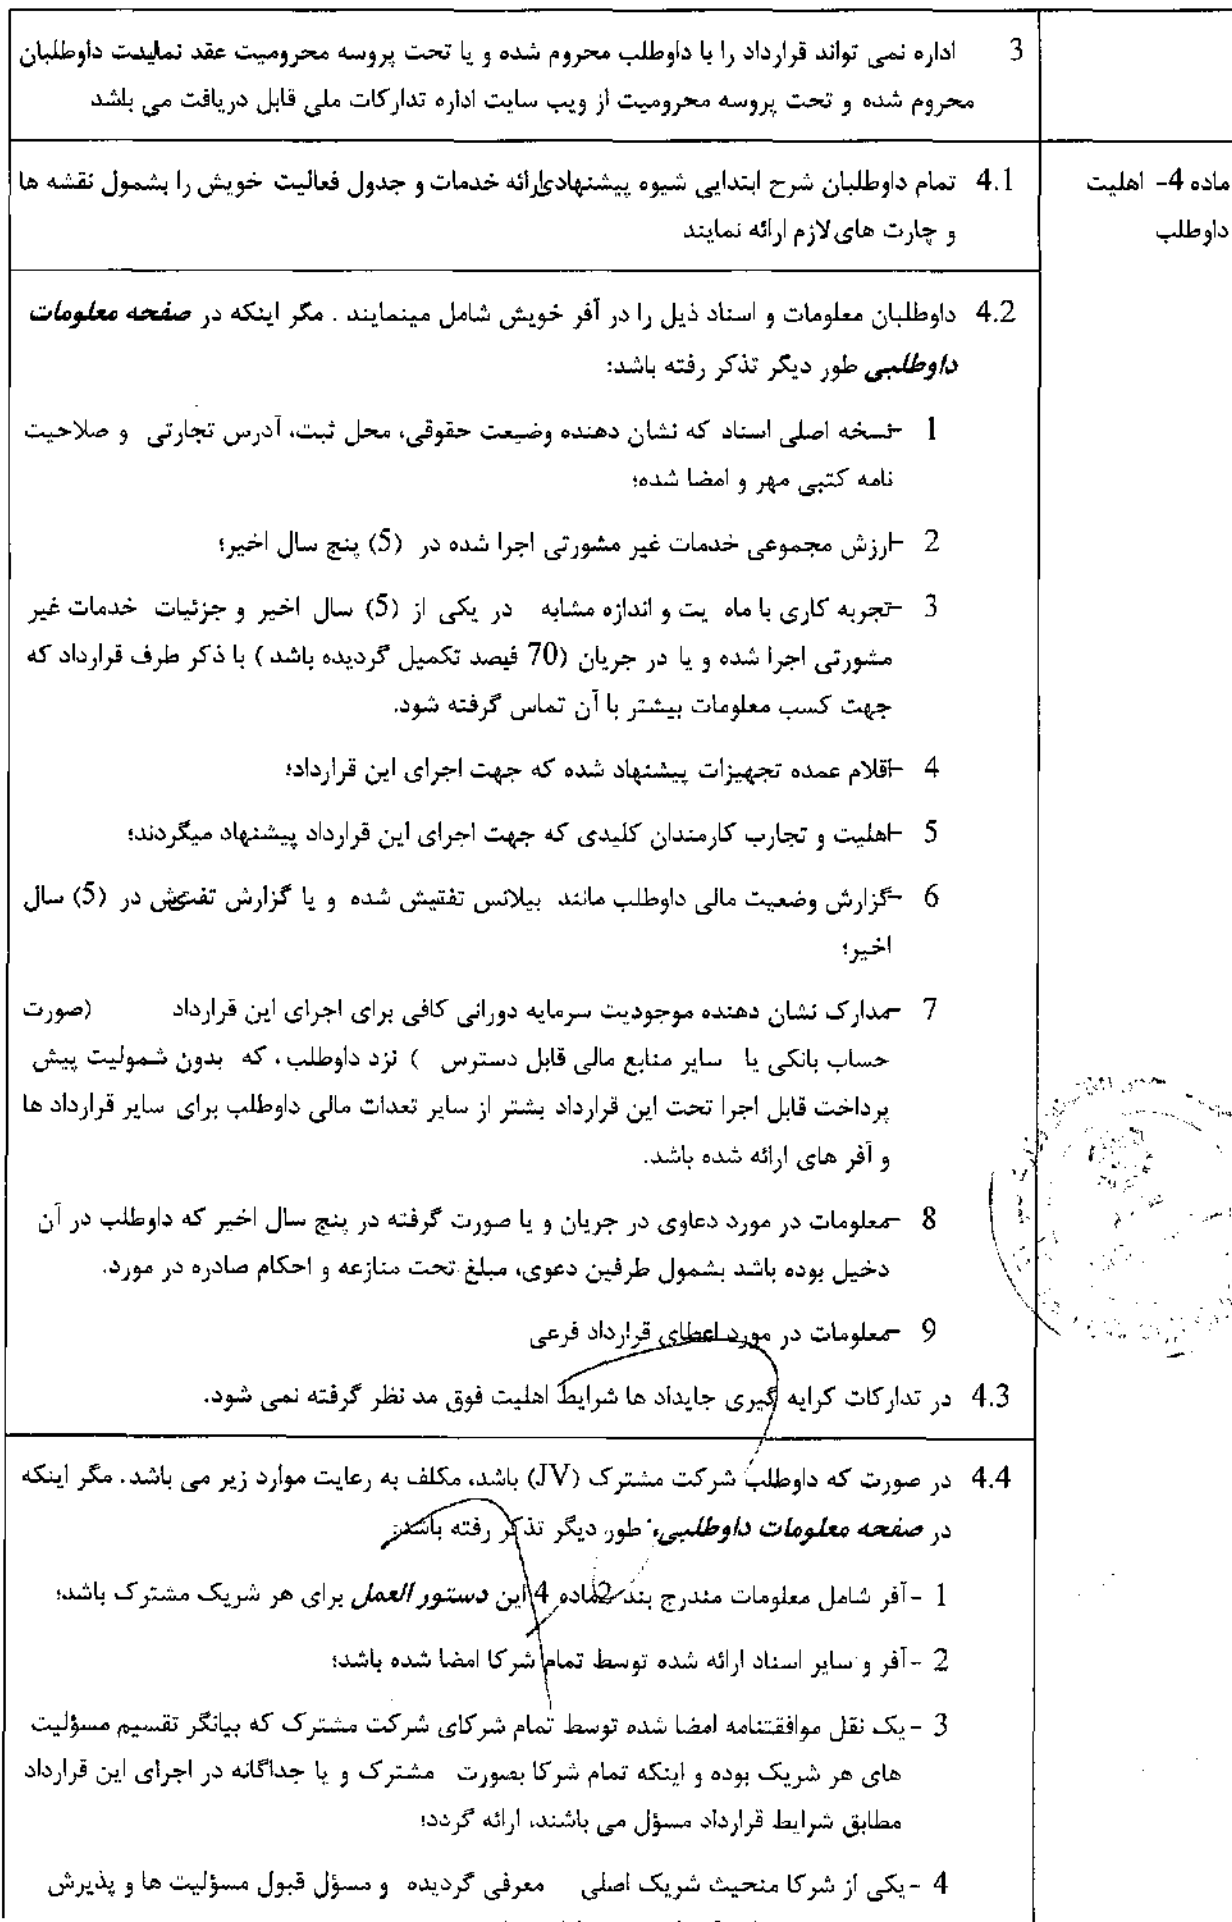 3 اداره نمی تواند قرارداد را با داوطلب محروم شده و یا تحت پروسه محرومیت عقد نمایدت داوطلبان
محروم شده و تحت پروسه محرومیت از ویب سایت اداره تدارکات ملی قابل دریافت می باشد
ماده 4- اهلیت
داوطلب
4.1 تمام داوطلبان شرح ابتدایی شیوه پیشنهادی ارائه خدمات و جدول فعالیت خویش را بشمول نقشه ها
و چارت های لازم ارائه نمایند
4.2 داوطلبان معلومات و اسناد ذیل را در آفر خویش شامل مینمایند . مگر اینکه در صفحه معلومات
داوطلبی طور دیگر تذکر رفته باشد:
1 -نسخه اصلی اسناد که نشان دهنده وضیعت حقوقی، محل ثبت، آدرس تجارتی و صلاحیت
نامه کتبی مهر و امضا شده؛
2 -ارزش مجموعی خدمات غیر مشورتی اجرا شده در (5) پنج سال اخیر؛
3 -تجربه کاری با ماه یت و اندازه مشابه در یکی از (5) سال اخیر و جزئیات خدمات غیر
مشورتی اجرا شده و یا در جریان (70 فیصد تکمیل گردیده باشد ) با ذکر طرف قرارداد که
جهت کسب معلومات بیشتر با آن تماس گرفته شود.
4 -اقلام عمده تجهیزات پیشنهاد شده که جهت اجرای این قرارداد؛
5 -اهلیت و تجارب کارمندان کلیدی که جهت اجرای این قرارداد پیشنهاد میگردند؛
6 -گزارش وضعیت مالی داوطلب مانند بیلانس تفتیش شده و یا گزارش تفتیش در (5) سال
اخیر؛
7 -مدارک نشان دهنده موجودیت سرمایه دورانی کافی برای اجرای این قرارداد (صورت
حساب بانکی یا سایر منابع مالی قابل دسترس ) نزد داوطلب ، که بدون شمولیت پیش
پرداخت قابل اجرا تحت این قرارداد بشتر از سایر تعدات مالی داوطلب برای سایر قرارداد ها
و آفر های ارائه شده باشد.
8 -معلومات در مورد دعاوی در جریان و یا صورت گرفته در پنج سال اخیر که داوطلب در آن
دخیل بوده باشد بشمول طرفین دعوی، مبلغ تحت منازعه و احکام صادره در مورد.
9 -معلومات در مورد اعطای قرارداد فرعی
4.3 در تدارکات کرایه گیری جایداد ها شرایط اهلیت فوق مد نظر گرفته نمی شود.
4.4 در صورت که داوطلب شرکت مشترک (JV) باشد، مکلف به رعایت موارد زیر می باشد. مگر اینکه
در صفحه معلومات داوطلبی، طور دیگر تذکر رفته باشد:
1 - آفر شامل معلومات مندرج بند 2 ماده 4 این دستور العمل برای هر شریک مشترک باشد؛
2 - آفر و سایر اسناد ارائه شده توسط تمام شرکا امضا شده باشد؛
3 - یک نقل موافقتنامه امضا شده توسط تمام شرکای شرکت مشترک که بیانگر تقسیم مسؤلیت
های هر شریک بوده و اینکه تمام شرکا بصورت مشترک و یا جداگانه در اجرای این قرارداد
مطابق شرایط قرارداد مسؤل می باشند، ارائه گردد؛
4 - یکی از شرکا منحیث شریک اصلی معرفی گردیده و مسؤل قبول مسؤلیت ها و پذیرش